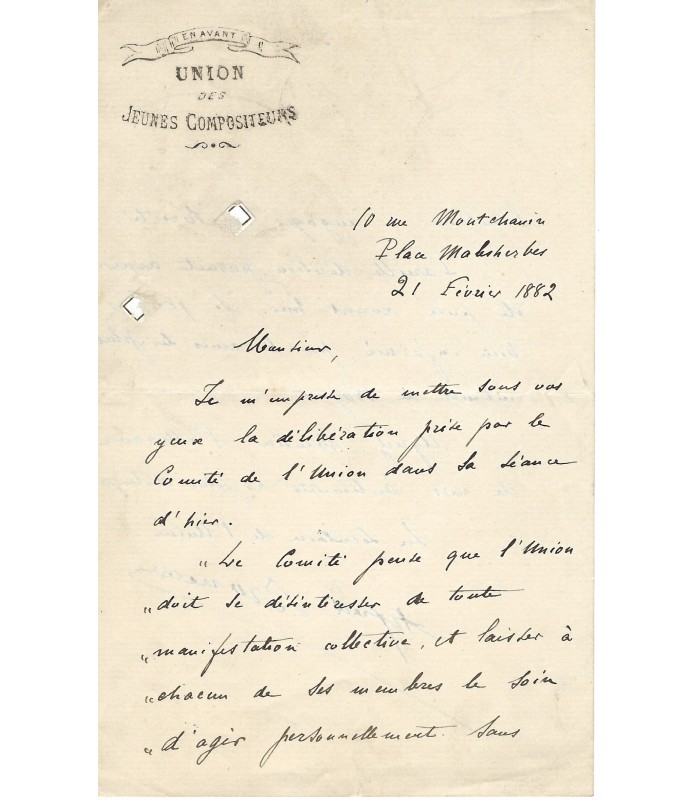 EN AVANT
UNION
DES
JEUNES COMPOSITEURS
10 rue Montchanin
Place Malesherbes
21 Février 1882
Monsieur,
Je m'empresse de mettre sous vos
yeux la délibération prise par le
Comité de l'Union dans sa séance
d'hier.
„Le Comité pense que l'Union
„doit se désintéresser de toute
„manifestation collective, et laisser à
„chacun de ses membres le soin
„d'agir personnellement. Sans